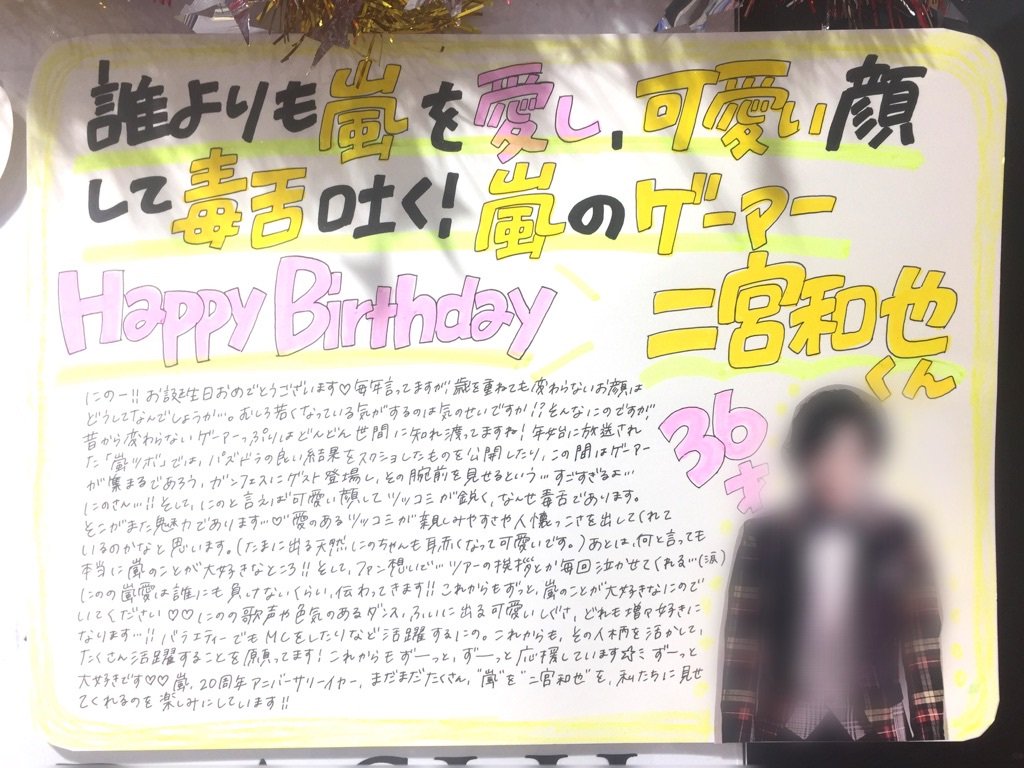 誰よりも嵐を愛し,可愛い顔
して毒舌吐く!嵐のゲーマー
Happy Birthday
二宮和也くん
36才
にのー!!お誕生日おめでとうございます♡毎年言ってますが歳を重ねても変わらないお顔は
どうしてなんでしょうか…。むしろ若くなっている気がするのは気のせいですか!?そんなにのですが
昔から変わらないゲーマーっぷりはどんどん世間に知れ渡ってますね!年始に放送され
た「嵐ツボ」では,パズドラの良い結果をスクショしたものを公開したり,この間はゲーマー
が集まるであろう,ガンフェスにゲスト登場し,その腕前を見せるという…すごすぎるよ…
にのさん…!!そして,にのと言えば可愛い顔してツッコミが鋭く,なんせ毒舌であります。
そこがまた魅力であります…♡愛のあるツッコミが親しみやすさや人懐っこさを出してくれて
いるのかなと思います。(たまに出る天然にのちゃんも耳赤くなって可愛いです。)あとは,何と言っても
本当に嵐のことが大好きなところ!!そして,ファン想いで…ツアーの挨拶とか毎回泣かせてくれる…(涙)
にのの嵐愛は誰にも負けないくらい,伝わってきます!!これからもずっと,嵐のことが大好きなにので
いてください♡♡にのの歌声や色気のあるダンス,ふいに出る可愛いしぐさ,どれも増々好きに
なります…!!バラエティーでもMCをしたりなど活躍するにの。これからも,その人柄を活かして,
たくさん活躍することを願ってます!これからもずーっと,ずーっと応援しています ずーっと
大好きです♡♡嵐,20周年アニバーサリーイヤー,まだまだたくさん,"嵐"を"二宮和也"を,私たちに見せ
てくれるのを楽しみにしています!!